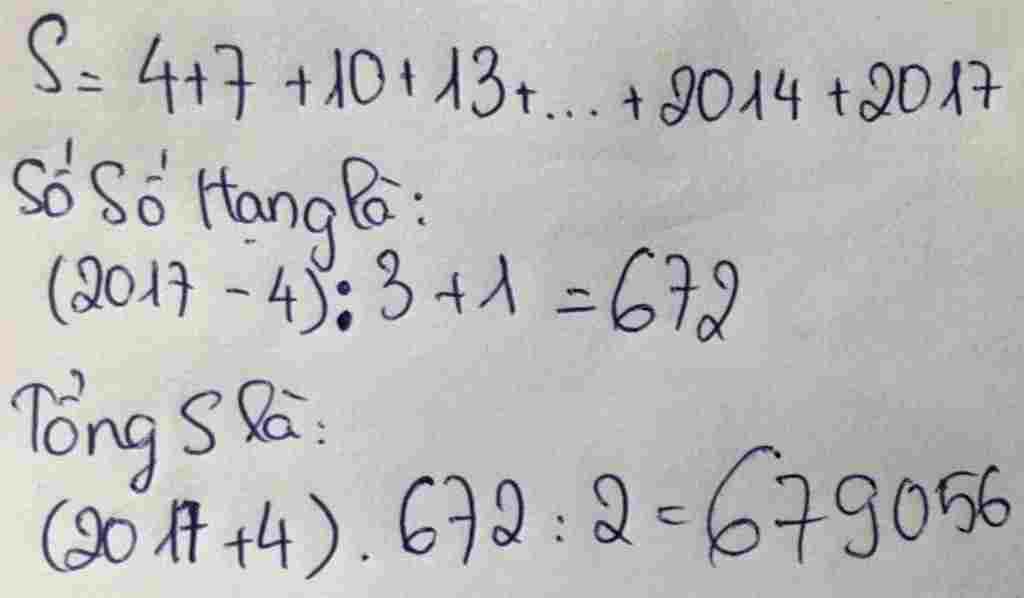 S = 4+7 +10 + 13 + ... + 2014 + 2017
Số Số Hạng là:
(2017 - 4) : 3 + 1 = 672
Tổng S là:
(2017 + 4) . 672 : 2 = 679056